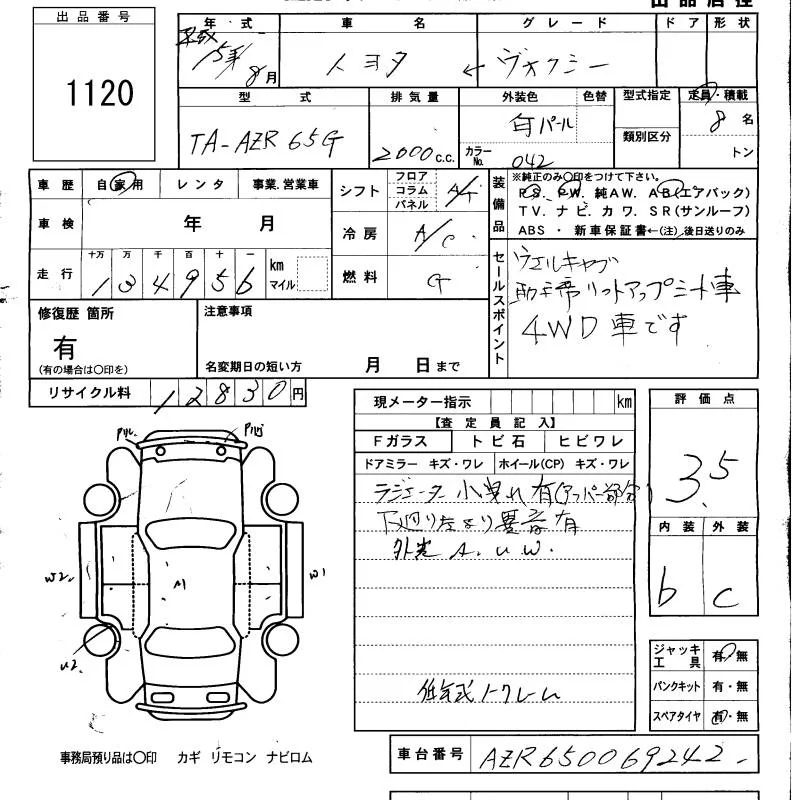 出品番号
1120
年式
平成
15年
8月
車名
トヨタ
グレード
← ヴォクシー
ドア 形状
型式
TA-AZR65G
排気量
2000 c.c.
外装色
白パール
色替
カラーNo.
042
型式指定
類別区分
定員・積載
8名
トン
車歴
自家用
レンタ
事業.営業車
車検
年 月
走行
十万 万 千 百 十 一
134956
km
マイル
シフト
フロア
コラム
パネル
A/T
冷房
A/C
燃料
G
装備品
※純正のみ〇印をつけて下さい。
PS. PW. 純AW. AB(エアバック)
TV. ナビ. カワ. SR(サンルーフ)
ABS ・ 新車保証書←(注)後日送りのみ
セールスポイント
ウェルキャブ
助手席リフトアップシート車
4WD車です
修復歴 箇所
有
(有の場合は〇印を)
注意事項
名変期日の短い方
月 日まで
リサイクル料
12830円
現メーター指示
km
【査定員記入】
Fガラス
トビ石
ヒビワレ
ドアミラー キズ・ワレ
ホイール(CP) キズ・ワレ
ラジエーター小曲れ有(アッパー部分)
下廻りたより異音有
外装 A.U.W.
評価点
3.5
内装 外装
b c
W2
W1
A1
U2
ジャッキ
工具
有・無
パンクキット
有・無
スペアタイヤ
有・無
事務局預り品は〇印 カギ リモコン ナビロム
車台番号
AZR650069242-